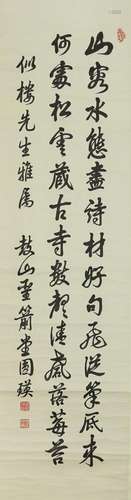 山容水態盡詩材好句飛從筆底來
何處松雲藏古寺數聲清磬落莓苔
似樓先生雅属 鼓山聖箭堂圓瑛